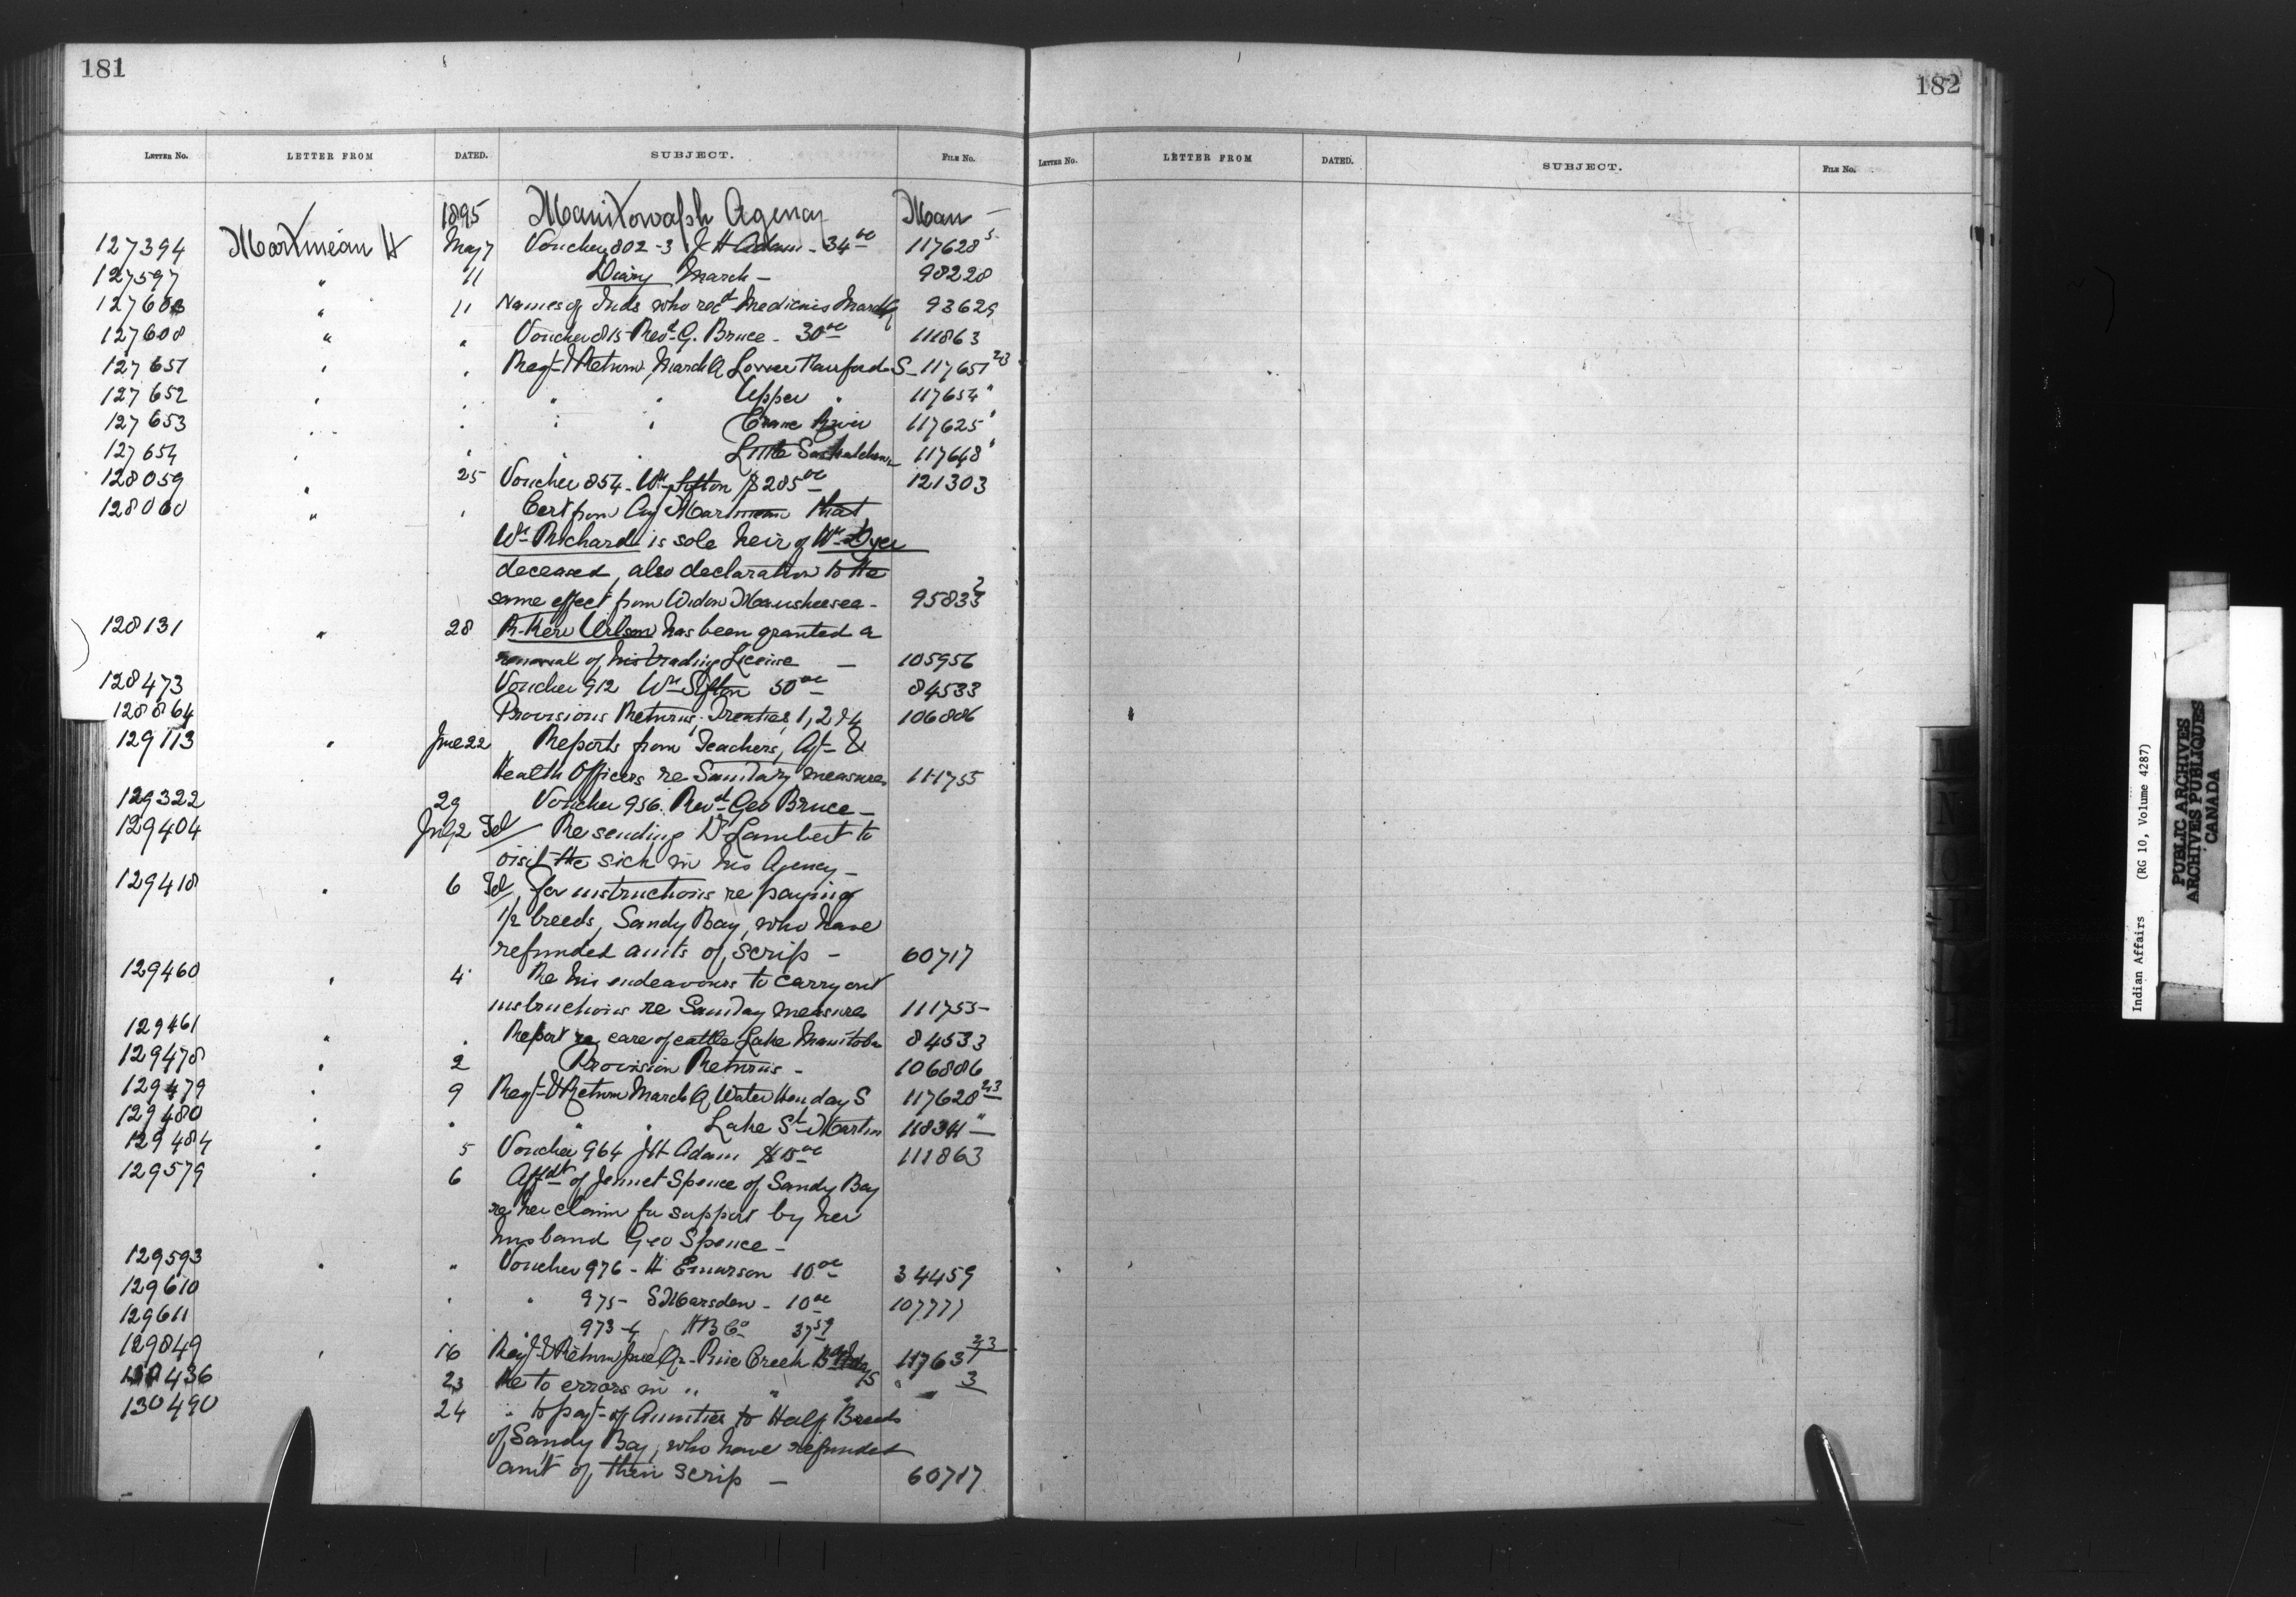 181
182
LETTER NO. LETTER FROM DATED. SUBJECT. FILE NO.
LETTER NO. LETTER FROM DATED. SUBJECT. FILE NO.
1895 Manitowapah Agency Man —
127394 Martineau H May 7 Voucher 802-3 J H Adam - 34 00 117628 5
127597 " 11 Diary March — 98228
127603 " 11 Names of Inds who recd Medicines March Q 93629
127608 " " Voucher 815 Revd G. Bruce - 30 00 111863
127651 " " Regr & Return March Q Lower Fairford S - 117651 2/3
127652 " " " " Upper " 117654 "
127653 " " " " Crane River 117625 "
127654 " " " " Little Saskatchewan 117648 "
128059 " 25 Voucher 854 - Wm Sifton $285 00 121303
128060 " " Cert from Agt Martineau that
Wm Richard is sole heir of Wm Dyer
deceased, also declaration to the
same effect from Widow - 95833 2
128131 " 28 R. Kerr Wilson has been granted a
renewal of his trading License — 105956
128473 Voucher 912 Wm Sifton 50 00 84533
128864 Provisions Returns, Treaties 1, 2 & 4 106886
129113 " June 22 Reports from Teachers, Agt &
Health Officers re Sanitary measures 111755
129322 29 Voucher 956. Revd Geo Bruce —
129404 July 2 Tel Re sending Dr Lambert to
visit the sick in his Agency —
129418 " 6 Tel, for instructions re paying
1/2 breeds, Sandy Bay, who have
refunded amts of scrip — 60717
129460 " 4 Re his endeavours to carry out
instructions re Sanitary measures 111755 -
129461 " " Report re care of cattle Lake Manitoba 84533
129478 " 2 Provision Returns - 106886
129479 " 9 Regr & Return March Q Water Hen day S 117628 2/3
129480 " " " " Lake St Martin 118341 " —
129484 " 5 Voucher 964 J H Adam $15 00 111863
129579 " 6 Affdt of Jennet Spence of Sandy Bay
re her claim for support by her
husband Geo Spence —
129593 " " Voucher 976 - H Emerson 10 00 34459
129610 " " 975 - S Marsden - 10 00 107777
129611 " " 973-4 H B Co 37 59
129849 " 16 Regr & Return June Qr - Pine Creek 11763 2/3
130436 23 Re to errors in " " " 3
130490 24 " to payt of Annuities to Half Breeds
of Sandy Bay, who have refunded
amt of their scrip — 60717
Indian Affairs (RG 10, Volume 4287)
PUBLIC ARCHIVES
ARCHIVES PUBLIQUES
CANADA